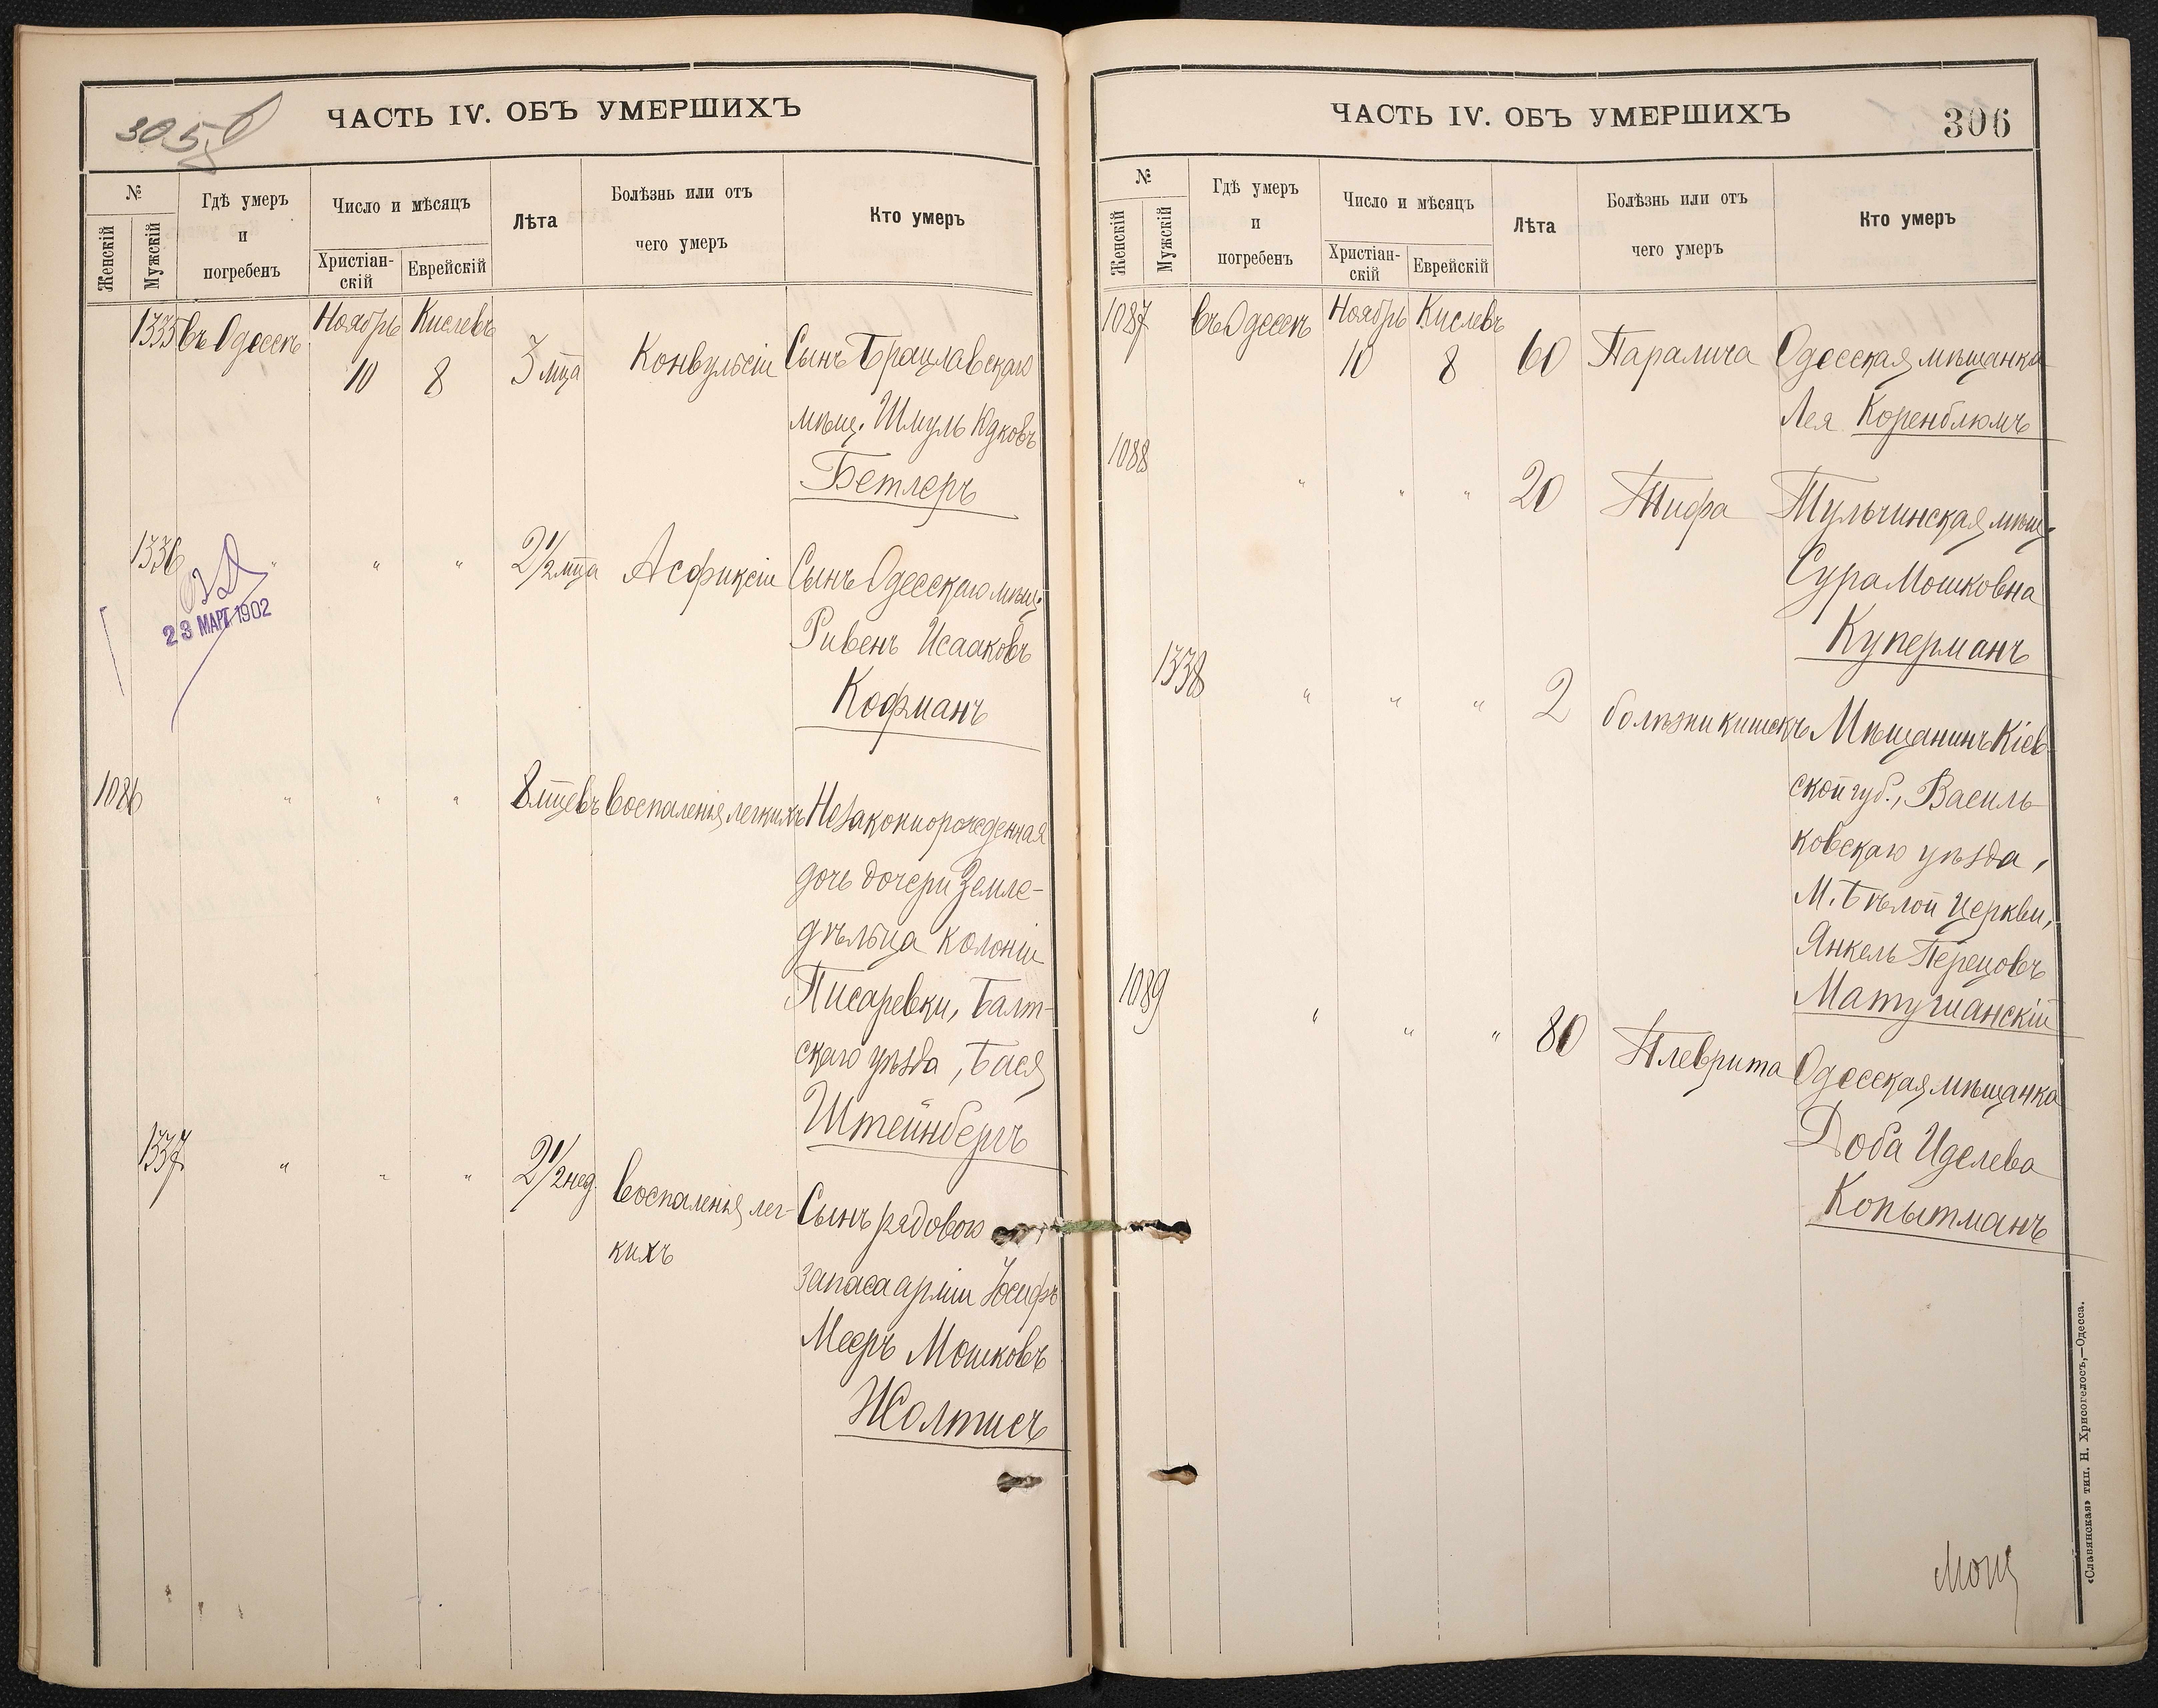 305 б
ЧАСТЬ IV. ОБЪ УМЕРШИХЪ
№
Женскій
Мужскій
Гдѣ умеръ
и
погребенъ
Число и мѣсяцъ
Христіан-
скій
Еврейскій
Лѣта
Болѣзнь или отъ
чего умеръ
Кто умеръ
1335 въ Одессѣ Ноябрь Кислевъ
10 8 3 мца Конвульсіи Сынъ Брацлавскаго
мѣщ. Шмуль Юдковъ
Бетлеръ
1336 " " " 2 1/2 мца Асфиксіи Сынъ Одесскаго мѣщ.
Ривенъ Исааковъ
Кофманъ
23 МАРТ 1902
1086 " " " 8 мцевъ воспаленія легкихъ Незаконнорожденная
дочь дочери Земле-
дѣльца колоніи
Писаревки, Балт-
скаго уѣзда, Бася
Штейнбергъ
1337 " " " 2 1/2 нед. воспаленія лег- Сынъ рядового
кихъ
запаса арміи Іосифъ
Мееръ Мошковъ
Жолтисъ
ЧАСТЬ IV. ОБЪ УМЕРШИХЪ
306
№
Женскій
Мужскій
Гдѣ умеръ
и
погребенъ
Число и мѣсяцъ
Христіан-
скій
Еврейскій
Лѣта
Болѣзнь или отъ
чего умеръ
Кто умеръ
1087 въ Одессѣ Ноябрь Кислевъ
10 8 60 Паралича Одесская мѣщанка
Лея Коренблюмъ
1088 " " " 20 Тифа Тульчинская мѣщ.
Сура Мошковна
Куперманъ
1338 " " " 2 болѣзни кишекъ Мѣщанинъ Кіев-
ской губ., Василь-
ковскаго уѣзда,
М. Бѣлой Церкви,
Янкель Перецовъ
Матушанскій
1089 " " " 80 Плеврита Одесская мѣщанка
Доба Иделева
Копытманъ
«Славянская» тип. Н. Хрисогелосъ,—Одесса.